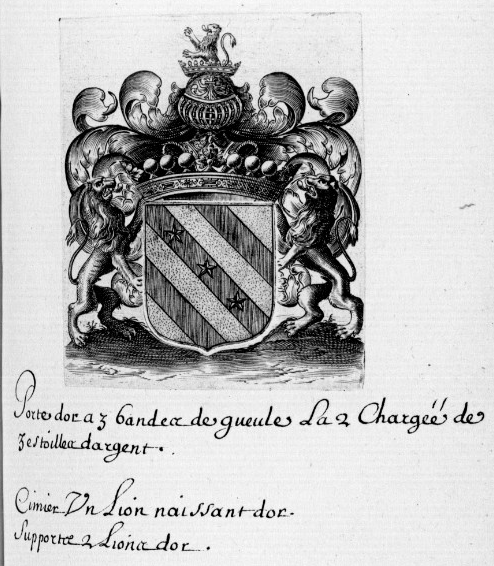 Porte dor a 3 bandes de gueule La 2 Chargéé de
3 estoilles dargent.
Cimier Vn Lion naissant dor.
Supports 2 Lions dor.